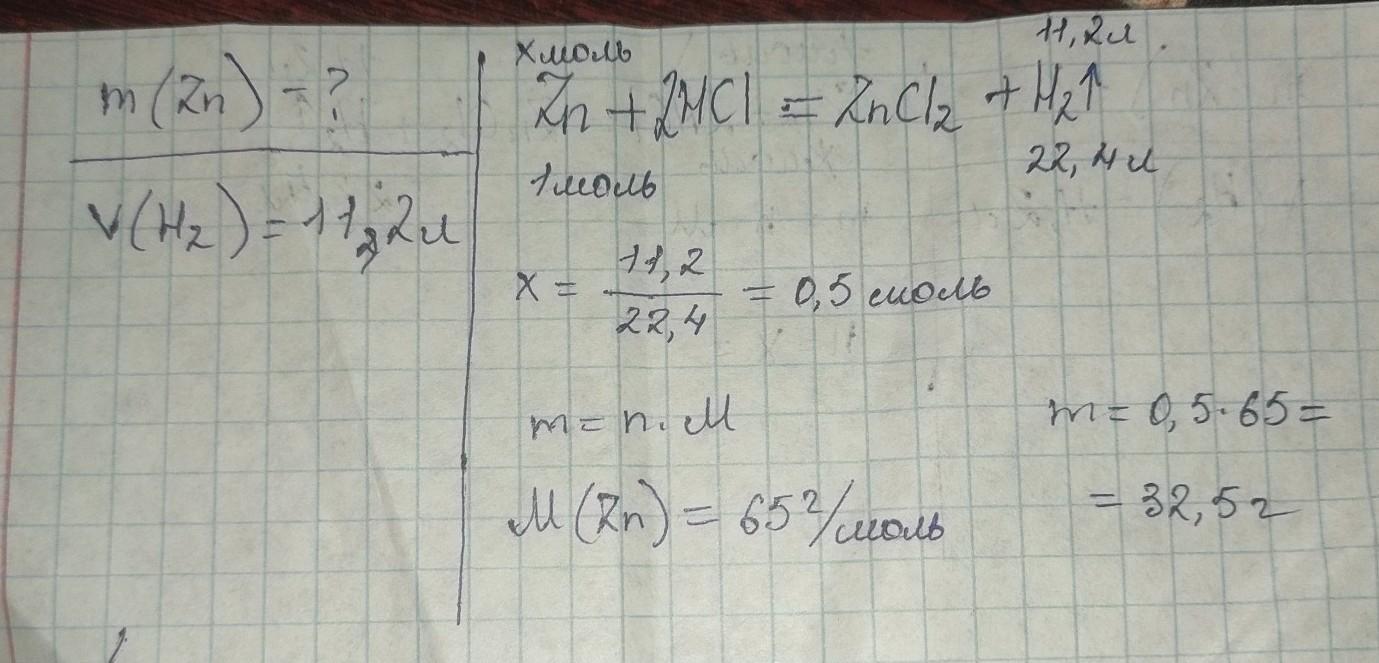 m(Zn) - ?
V(H₂) = 11,2л
x моль
11,2л
Zn + 2HCl = ZnCl₂ + H₂↑
1 моль
22,4л
x = 11,2 / 22,4 = 0,5 моль
m = n · M
M(Zn) = 65 г/моль
m = 0,5 · 65 =
= 32,5 г